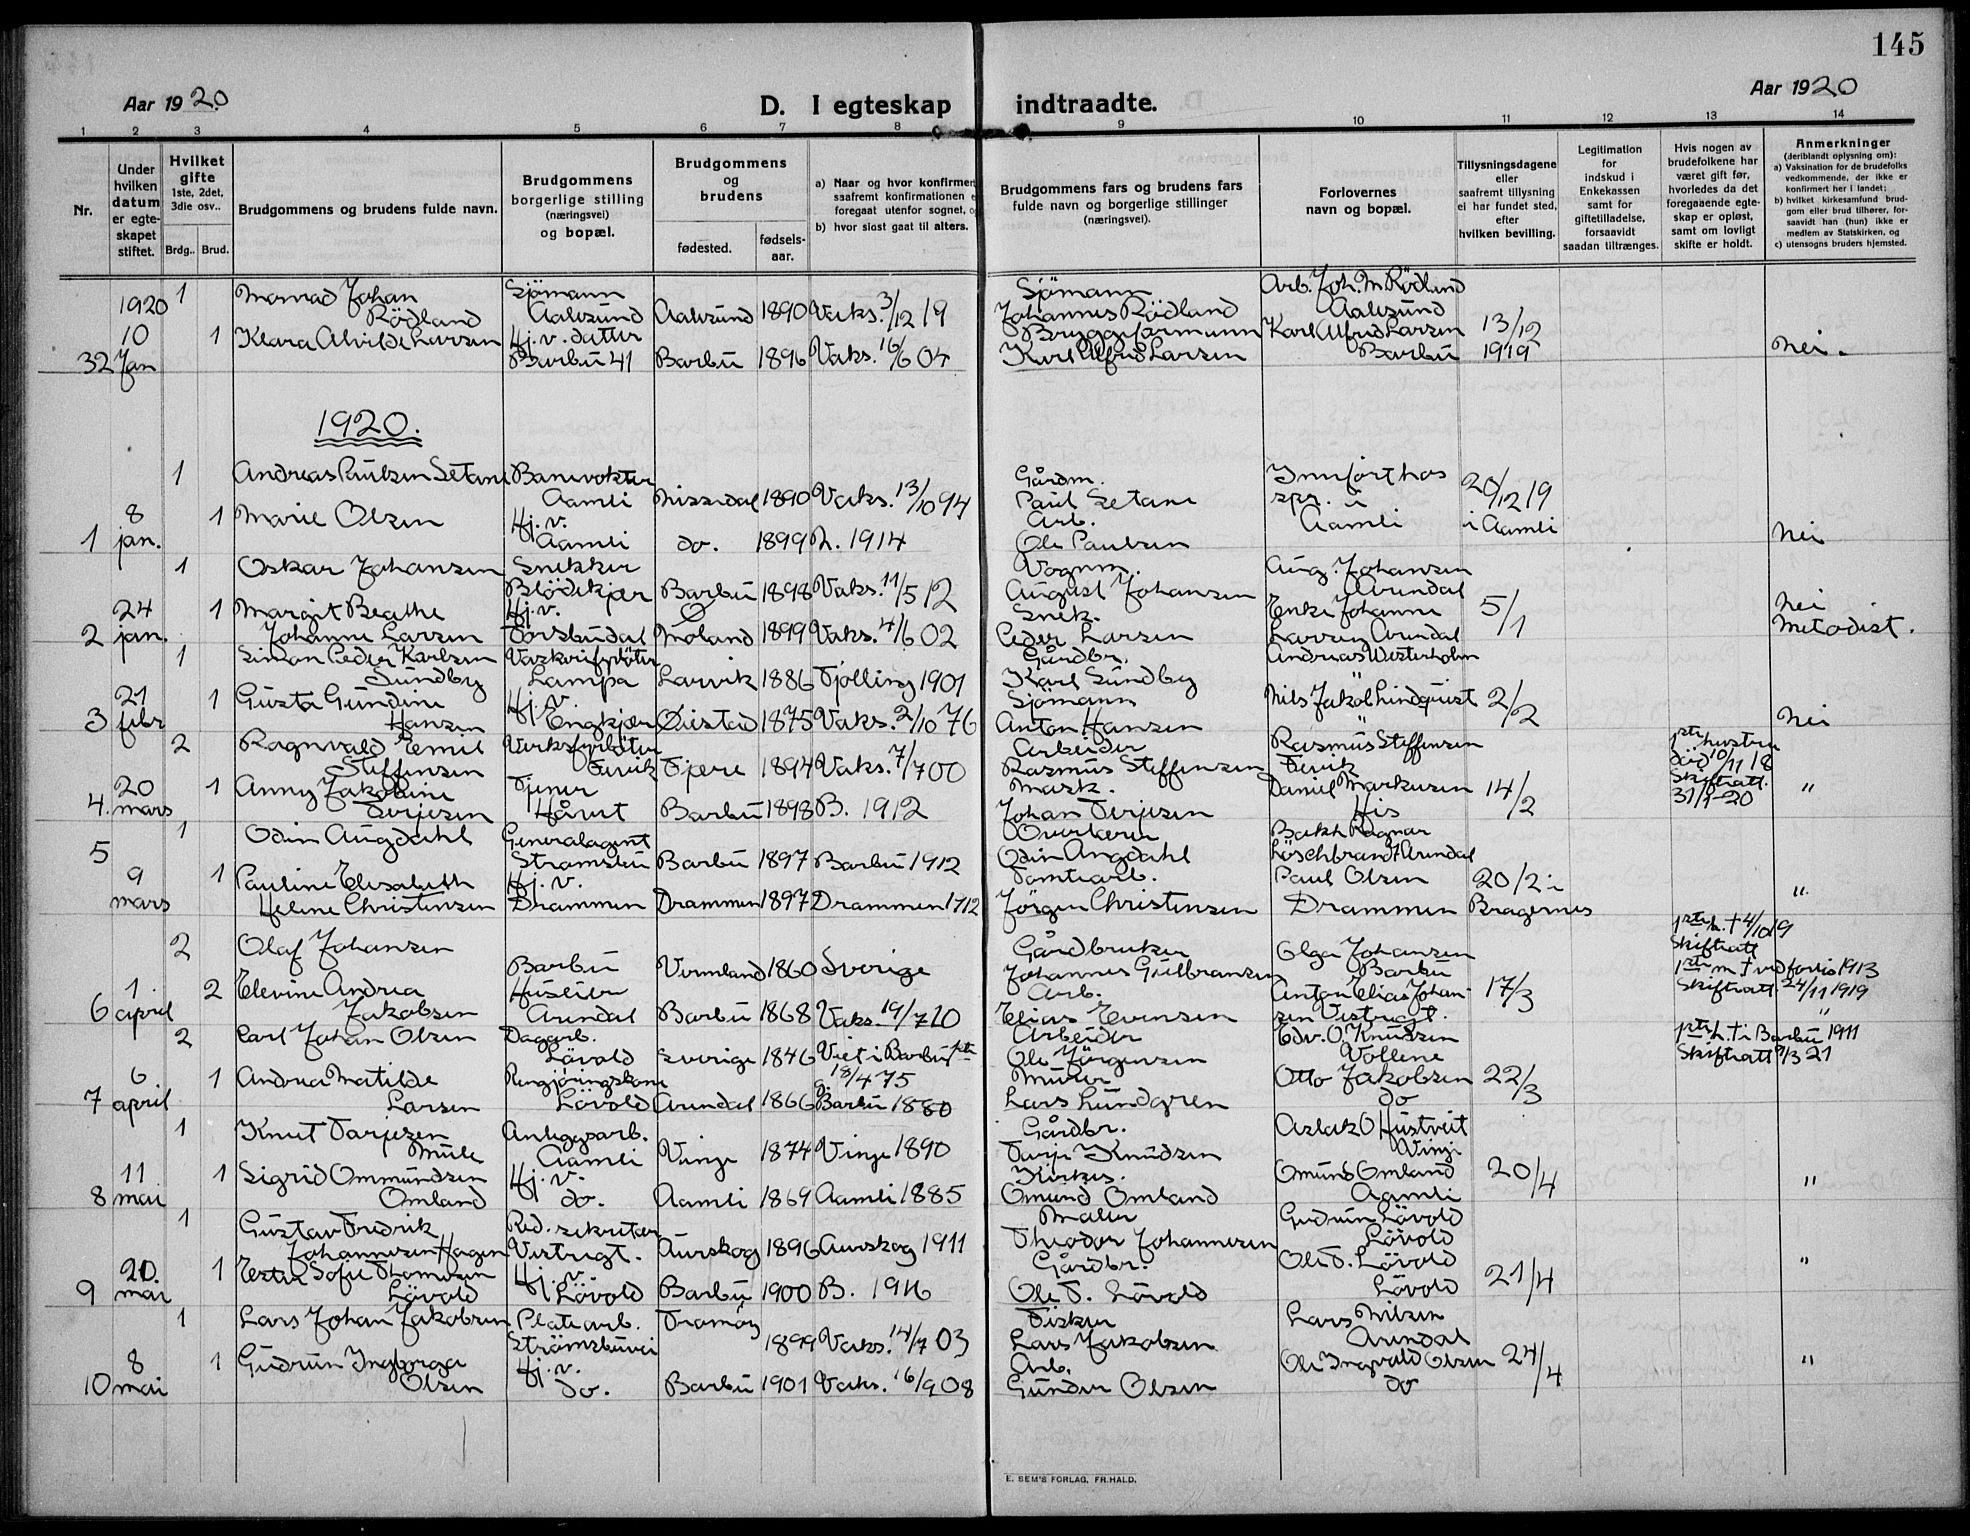 145
Aar 1920
D. I egteskap indtraadte.
Aar 1920
1 2 3 4 5 6 7 8 9 10 11 12 13 14
Nr.
Under hvilken datum er egteskapet stiftet.
Hvilket gifte 1ste, 2det, 3die osv..
Brdg.. Brud.
Brudgommens og brudens fulde navn.
Brudgommens borgerlige stilling (næringsvei) og bopæl.
Brudgommens og brudens
fødested. fødselsaar.
a) Naar og hvor konfirmert saafremt konfirmationen
foregaat utenfor sognet,
b) hvor sidst gaat til alters.
Brudgommens fars og brudens fars fulde navn og borgerlige stillinger (næringsvei).
Forlovernes navn og bopæl.
Tillysningsdagene eller saafremt tillysning ei har fundet sted, efter hvilken bevilling.
Legitimation for indskud i Enkekassen samt for giftetilladelse, forsaavidt saadan tiltrænges.
Hvis nogen av brudefolkene har været gift før, hvorledes da det foregaaende egteskap er opløst, samt om lovligt skifte er holdt.
Anmerkninger
(deriblandt oplysning om):
a) Vaksination for de brudefolks vedkommende, der ikke er konfirmert her i landet;
b) hvilket kirkesamfund brudgom eller brud tilhører, forsaavidt han (hun) ikke er medlem av Statskirken, og
c) utensogns bruders hjemsted.
1 Johan Sjömann Sjömann Arb. Joh. M. Rödland
1920 Rödland Aalesund Aalesund 1890 Vaks. 3/12 19 Johannes Rödland Aalesund
10 1 Klara Alvilde Larsen Hj. v. datter Bryggeformann Karl Alfred Larsen 13/12
32 Jan Barbu 41 Barbu 1896 Vaks. 16/6 04 Karl Alfred Larsen Barbu 1919 Nei.
1920.
1 Andreas Paulsen Setane Banevokter Gårdm. Innfört hos
Aamli Nissedal 1890 Vaks. 13/10 94 Paul Setane spr. i 20/12 19
8 1 Marie Olsen Hj. v. Arb. Aamli i Aamli
1 jan. Aamli do. 1899 N. 1914 Ole Paulsen Nei
1 Oskar Johansen Snekker Vognm. Aug. Johansen
Blödekjær Barbu 1898 Vaks. 11/5 12 August Johansen Arundal
24 1 Margit Beathe Hj. v. Ø Snek. Enke Johanne 5/1 Nei
2 jan. Johanne Larsen Torsbudal Moland 1899 Vaks. 4/6 02 Peder Larsen Larsen Arundal Metodist.
1 Simon Peder Karlsen Gårdbr. Andreas Westerholm
Sundby Lampa Larvik 1886 Tjölling 1901 Karl Sundby
21 1 Gusta Gundine Hj. v. Sjömann Nils Jakob Lindquist 2/2
3 febr Hansen Engkjær Øiestad 1875 Vaks. 2/10 76 Anton Hansen Nei
2 Ragnvald Emil Verksfyrböter Arbeider Rasmus Steffensen 1ste hustru
Steffensen Fevik Fjære 1894 Vaks. 7/7 00 Rasmus Steffensen Fevik död 10/11 18
20 1 Anny Jakobine Tjener Mask. Daniel Markusen 14/2 Skifteatt. "
4. mars Terjesen Håvet Barbu 1898 B. 1912 Johan Terjesen His 31/1-20
1 Odin Augdahl Generalagent Overkerer Bokh Ragnar
5 Strømsbu Barbu 1897 Barbu 1912 Odin Augdahl Löschbrandt Arundal
9 1 Pauline Elisabeth Hj. v. Tomtearb. Paul Olsen 20/2 i "
mars Helene Christensen Drammen Drammen 1897 Drammen 1912 Jörgen Christensen Drammen Bragernes
2 Olaf Johansen Gårdbruker Olga Johansen 1ste h. † 4/10 19
Barbu Vermland 1860 Sverige Johannes Gulbransen Barbu Skifteatt
1. 2 Elevine Andrea Husleier Arb. Anton Elias Johan- 17/3 1ste m † ved forlis 1913
6 april Jakobsen Arundal Barbu 1868 Vaks. 19/7 20 Elias Evensen sen Vestregt. Skifteatt 24/11 1919 "
2 Carl Johan Olsen Dagarb. Arbeider Edv. O. Knudsen 1ste h. † i Barbu 1911
Lövold Sverige 1846 Viet i Barbu 1ste Ole Jörgensen Vollene Skifteatt 9/3 21
6 1 Andrea Matilde Rengjöringskone g. 18/4 75 Murer Otto Jakobsen 22/3
7 april Larsen Lövold Arundal 1866 Barbu 1880 Lars Lundgren do
1 Knut Tarjesen Anleggsarb. Gårdbr. Aslak O Hustveit
Mule Aamli Vinje 1874 Vinje 1890 Tarje Knudsen Vinje
11 1 Sigrid Ommundsen Hj. v. Kirkes. Omund Omland 20/4 "
8 mai Omland do. Aamli 1869 Aamli 1885 Omund Omland Aamli
1 Gustav Fredrik Red. sekretær Maler Gudrun Lövold
Johannesen Hagen Vestregt. Aurskog 1896 Aurskog 1911 Theodor Johannesen Lövold
20. 1 Ester Sofie Thomesen Hj. v. Gårdbr. Ole T. Lövold 21/4 "
9 mai Lövold Lövold Barbu 1900 B. 1916 Ole T. Lövold Lövold
1 Lars Johan Jakobsen Platearb. Tromöy Fisker Lars Nilsen
Strömsbuvei 1899 Vaks. 14/7 03 Lars Jakobsen Arundal
8 1 Gudrun Ingborga Hj. v. Arb. Ole Ingvald Olsen 24/4 "
10 mai Olsen do. Barbu 1901 Vaks. 16/9 08 Gunder Olsen do
E. SEM'S FORLAG, FR.HALD.